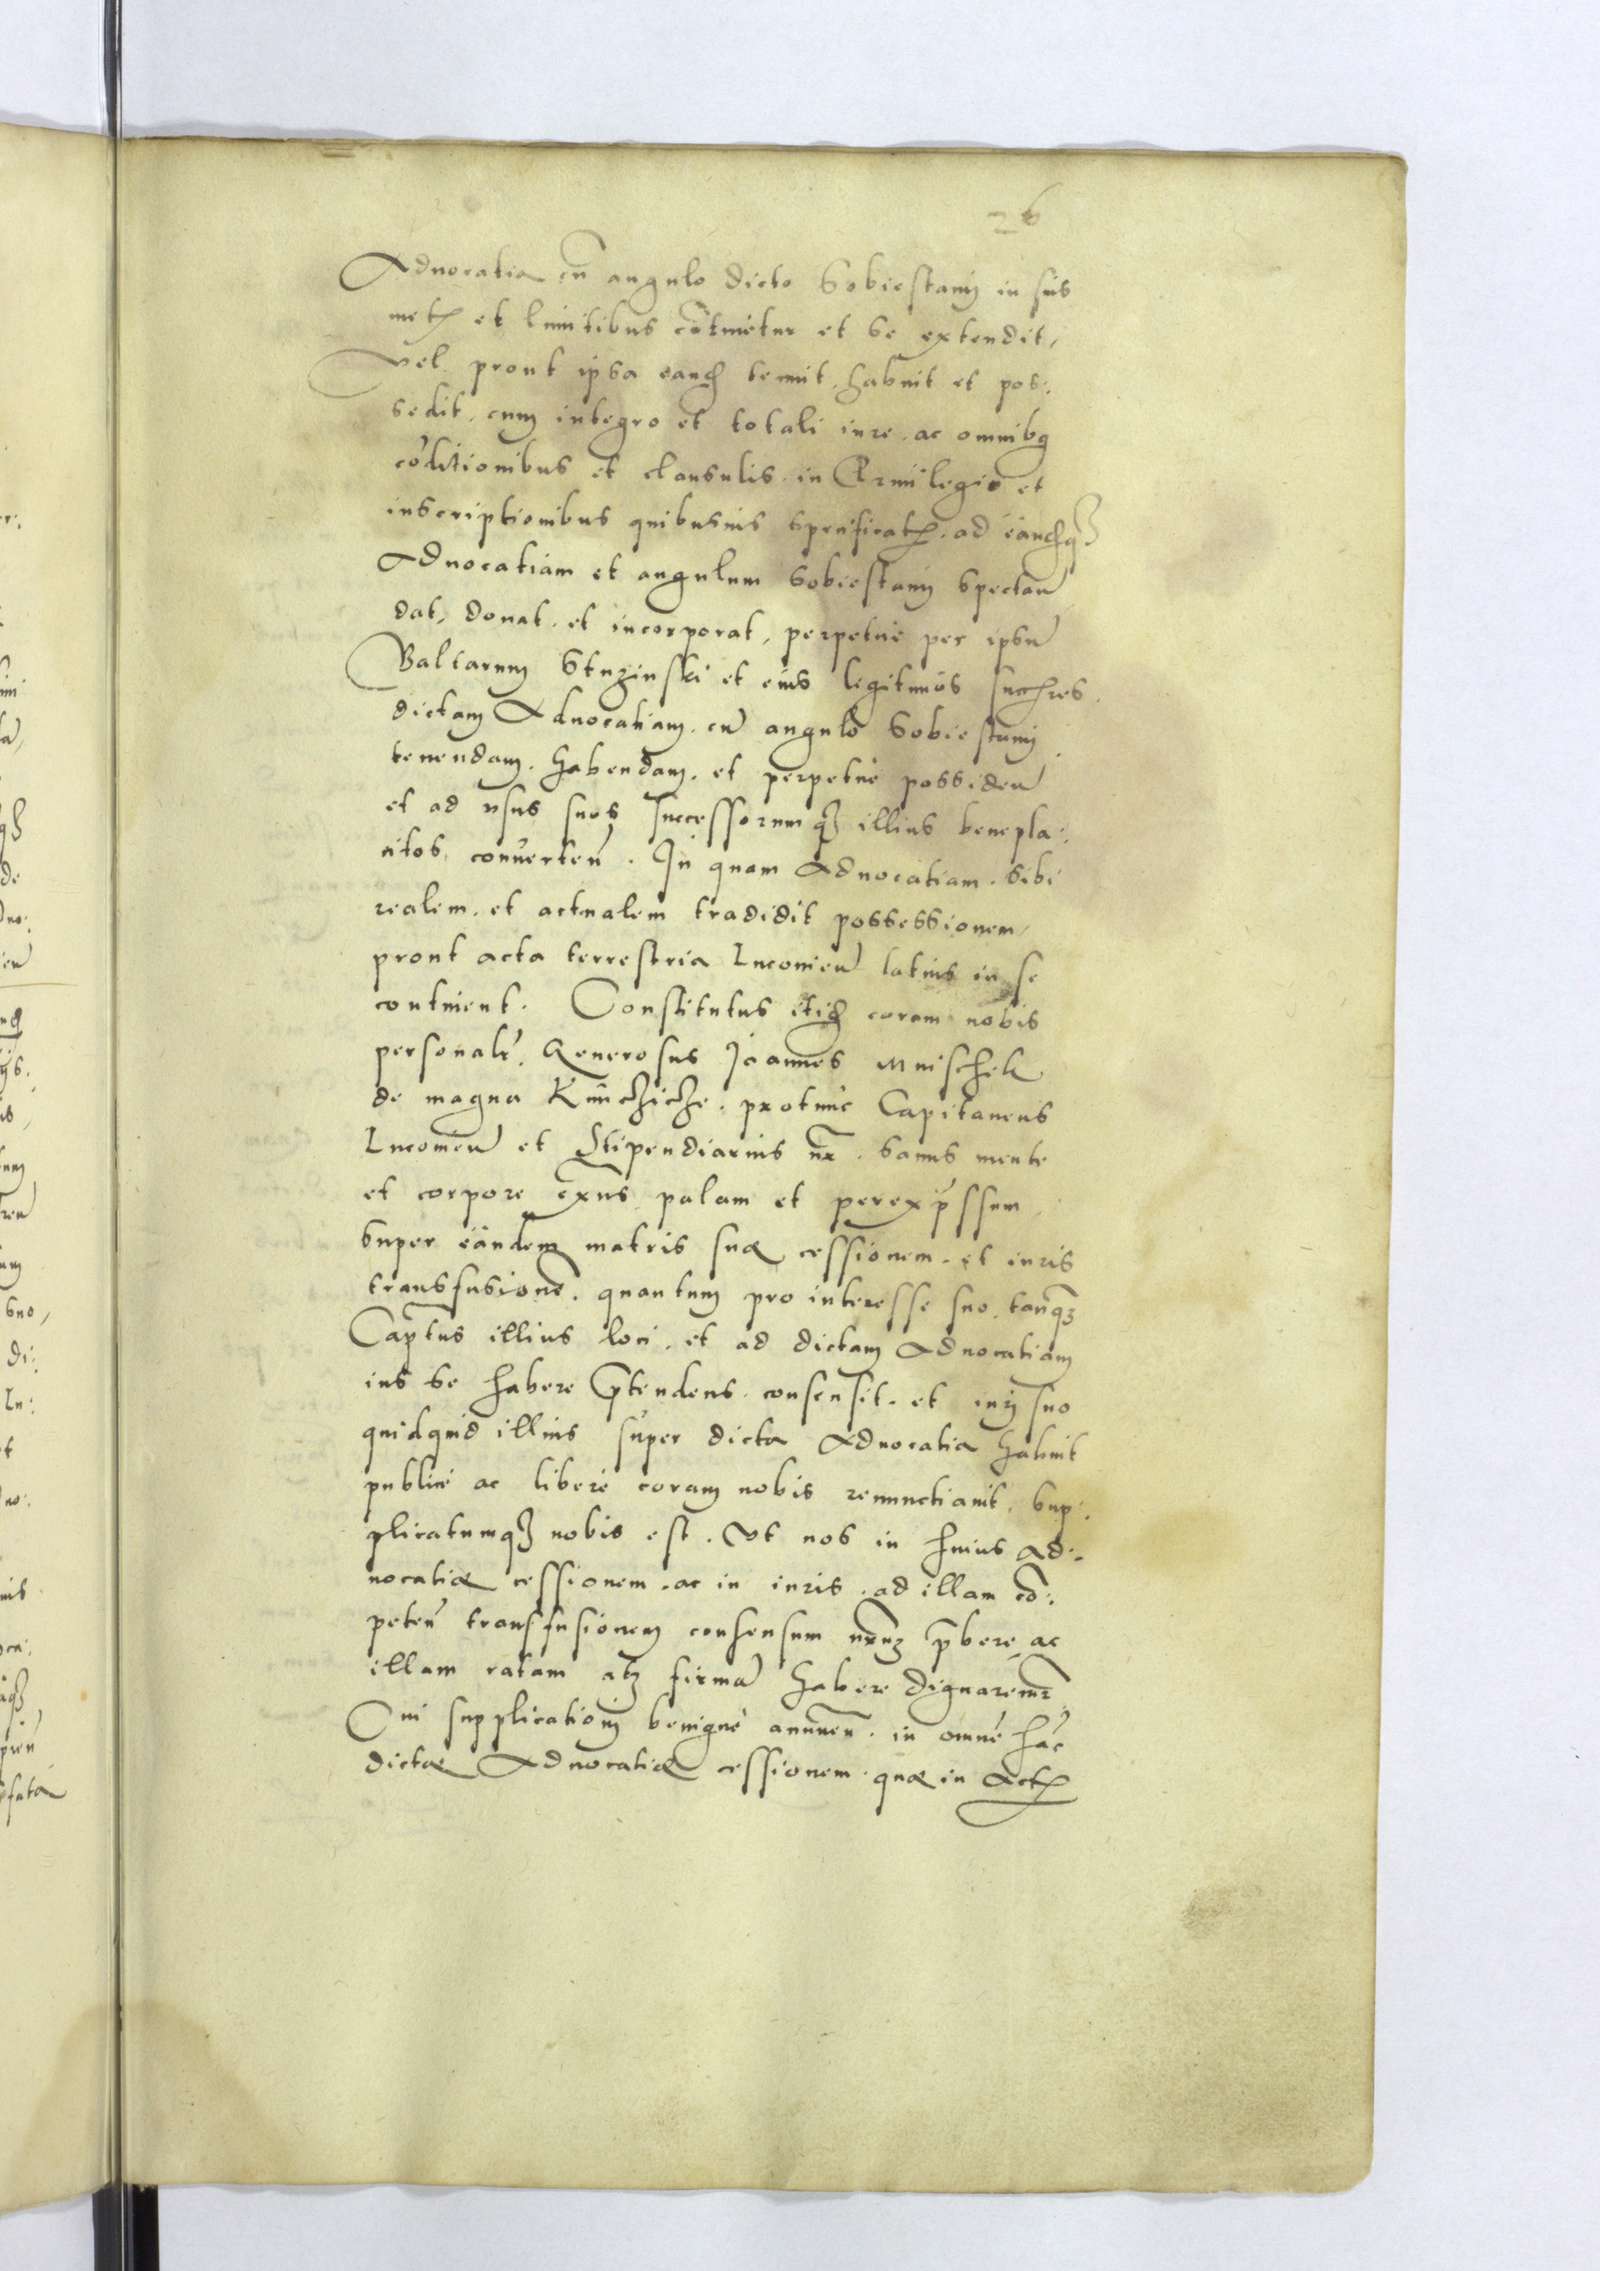 26
Aduocatia cũ angulo dicto Sobiestany in suis
metꝭ et limitibus cõtinetur et se extendit,
Vel prout ipsa eandẽ tenuit, habuit et pos:
sedit, cum integro et totali iure, ac omnibꝫ
cõditionibus et clausulis in et
inscriptionibus quibusuis specificatꝭ, ad eandẽqꝫ
Aduocatiam et angulum Sobiestany spectañ
dat, donat, et incorporat, perpetuè per ipsũ
Baltazarum et eius legitimos
dictam Aduocatiam, cũ angulo Sobiestany
tenendam, habendam, et perpetuè possideñ
et ad usus suos successorumqꝫ illius benepla:
citos, conuerteñ. In quam Aduocatiam, sibi
realem, et actualem tradidit possessionem,
prout acta terrestria Lucouieñ latius in se
continent. Constitutus itidẽ coram nobis
personalr̃. Generosus Joannes Mnischek
de magna Kunczicze, protunc Capitaneus
Lucouieñ et Stipendiarius nr̃, sanus mente
et corpore exñs, palam et perexp̃ssum,
super eandem matris suæ cessionem, et iuris
transfusionẽ, quantum pro interesse suo, tanqꝫ
Capt̃us illius loci, et ad dictam Aduocatiam
ius se habere p̃tendens, consensit, et iurj suo
quidquid illius super dicta Aduocatia habuit
publicè ac liberè coram nobis renunctiauit, sup:
plicatumqꝫ nobis est. Vt nos in huius Ad:
uocatiæ cessionem, ac in iuris, ad illam cõ:
peteñ transfusionem consensum nr̃um p̃bere, ac
illam ratam atqꝫ firmã habere dignaremur̃
Cui supplicationj benignè annueñ, in omnẽ hãc
dictæ Aduocatiæ cessionem, quæ in Actꝭ